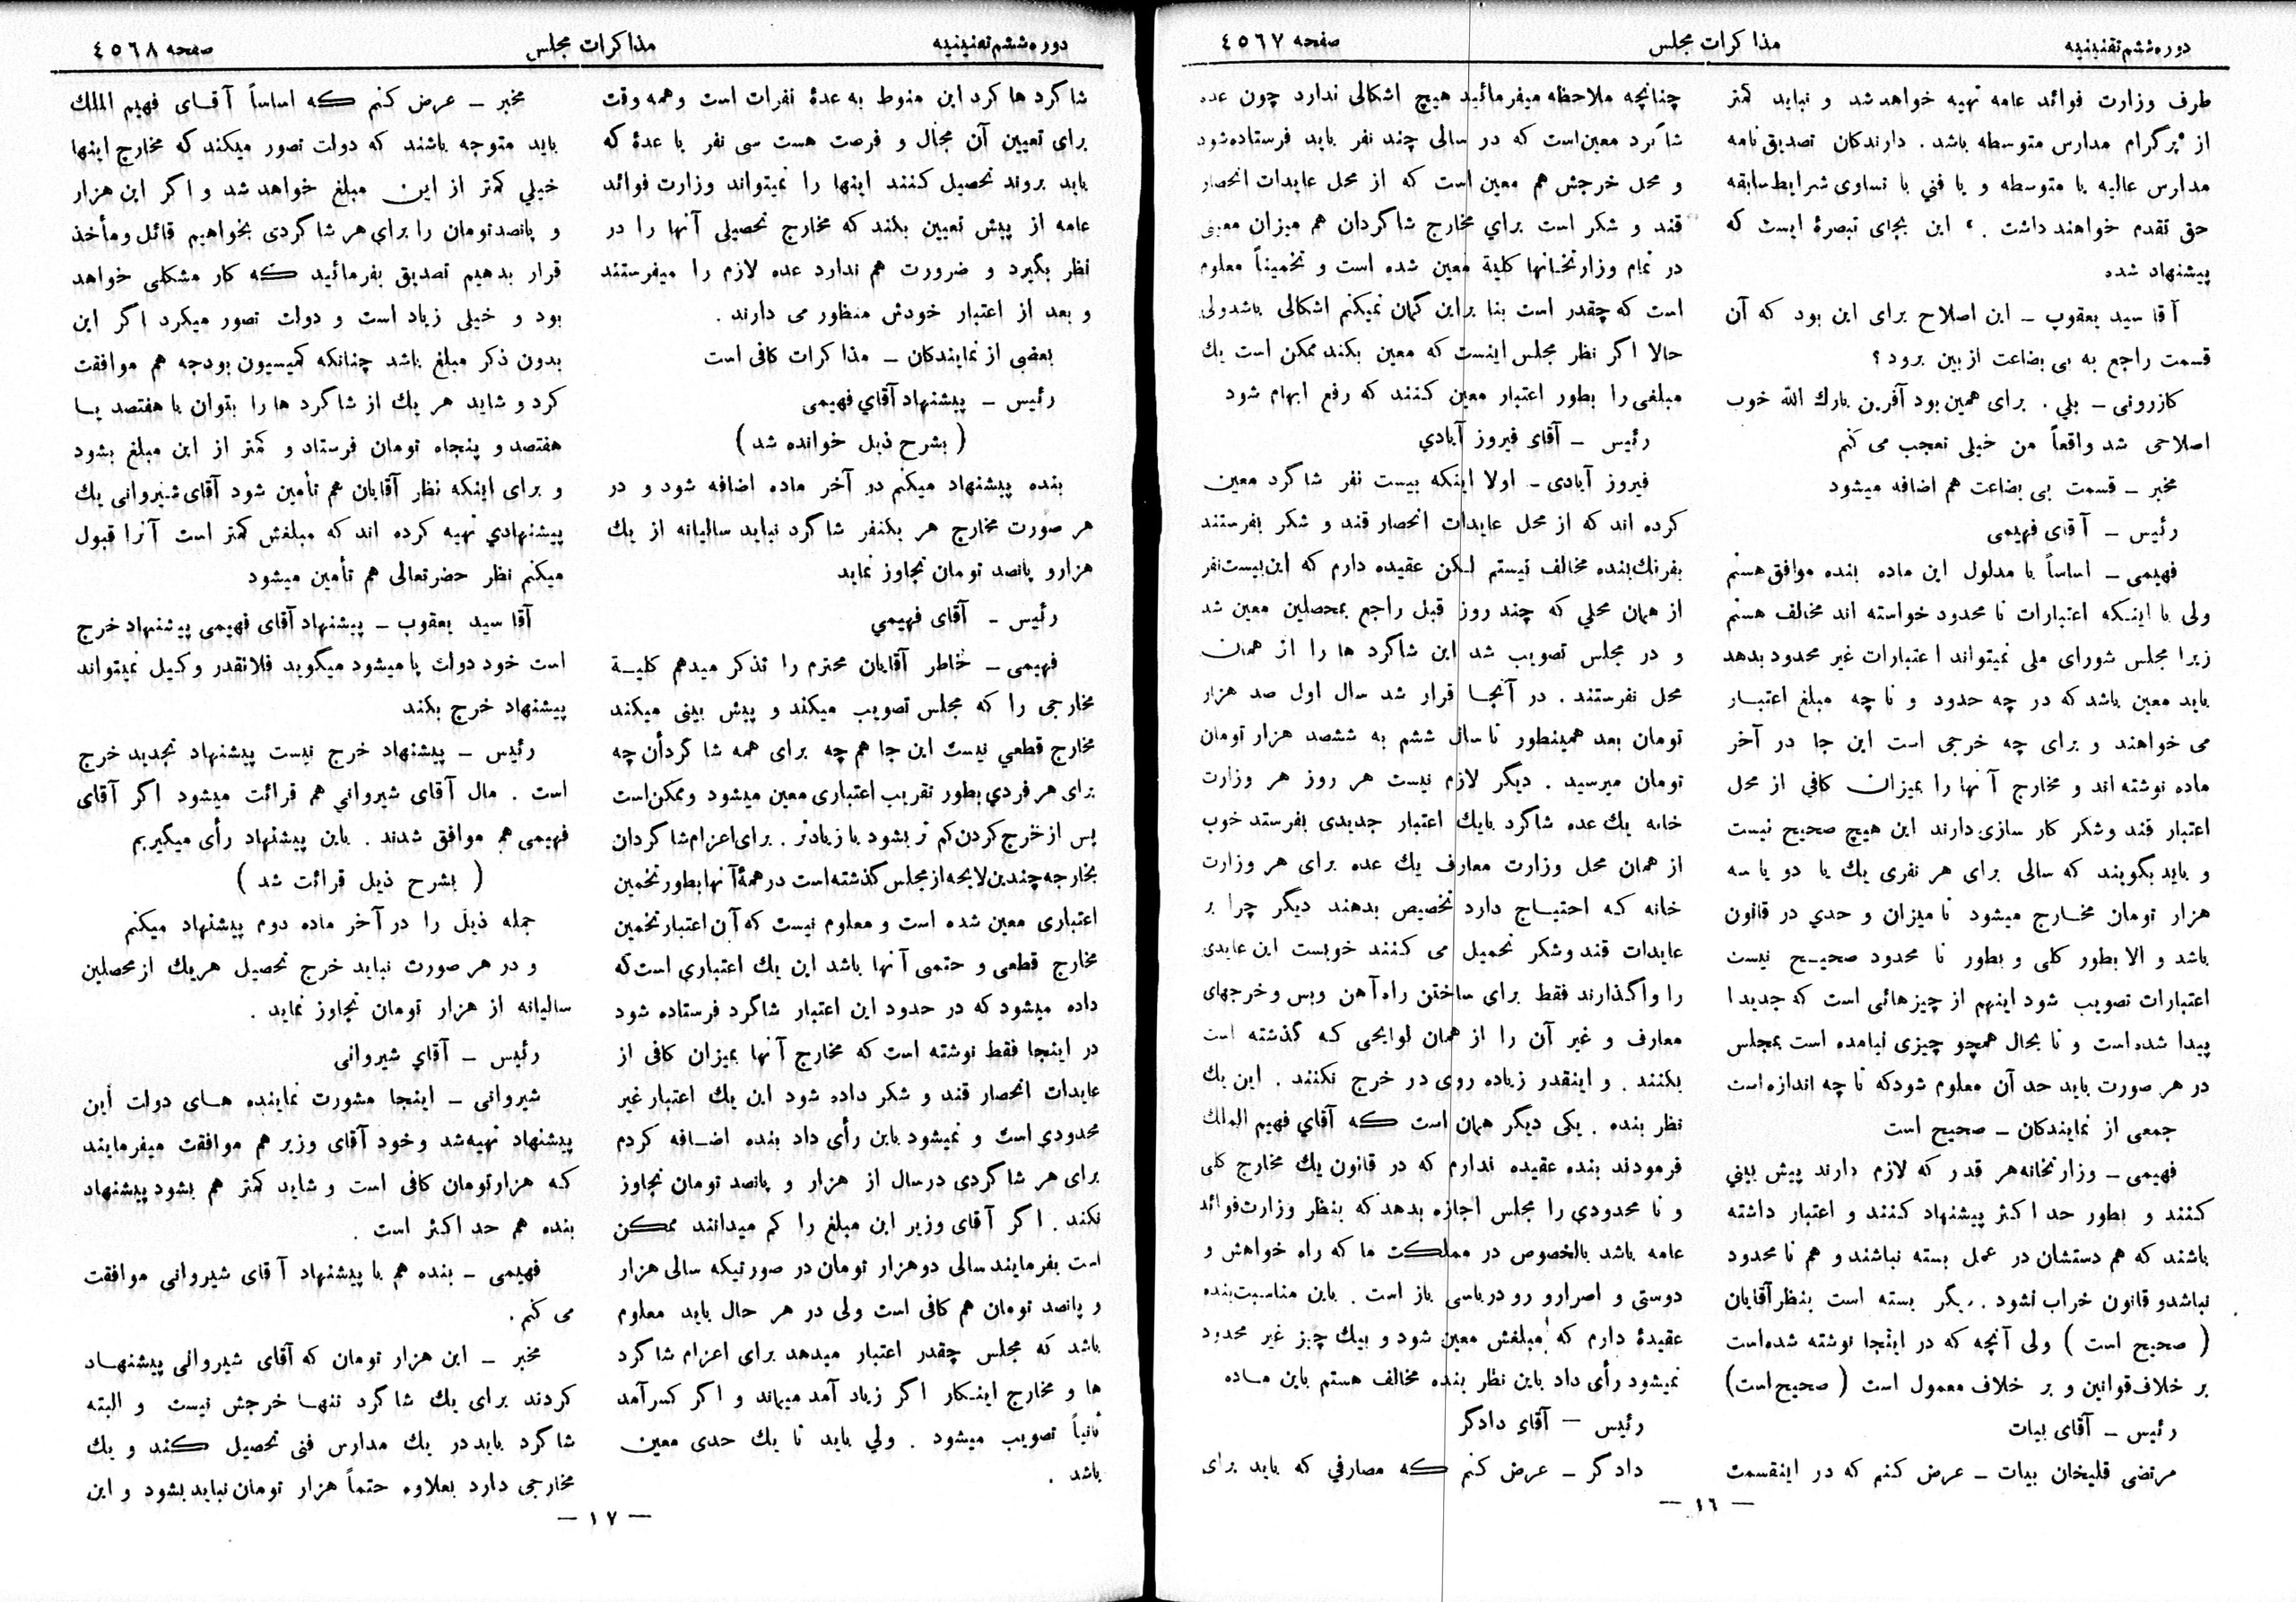 دوره ششم تقنینیه
مذاکرات مجلس
صفحه ٤٥٦٧
طرف وزارت فوائد عامه تهیه خواهد شد و نباید کمتر
از پرگرام مدارس متوسطه باشد . دارندکان تصدیق نامه
مدارس عالیه یا متوسطه و یا فنی با تساوی شرایط سابقه
حق تقدم خواهند داشت . ، این بجای تبصرهٔ ایست که
پیشنهاد شده
آقا سید یعقوب ــ این اصلاح برای این بود که آن
قسمت راجع به بی بضاعت از بین برود ؟
کازرونی ــ بلی . برای همین بود آفرین بارك الله خوب
اصلاحی شد واقعاً من خیلی تعجب می کنم
مخبر ــ قسمت بی بضاعت هم اضافه میشود
رئیس ــ آقای فهیمی
فهیمی ــ اساساً با مدلول این ماده بنده موافق هستم
ولی با اینکه اعتبارات نا محدود خواسته اند مخالف هستم
زیرا مجلس شورای ملی نمیتواند اعتبارات غیر محدود بدهد
باید معین باشد که در چه حدود و تا چه مبلغ اعتبار
می خواهند و برای چه خرجی است این جا در آخر
ماده نوشته اند و مخارج آنها را بمیزان کافی از محل
اعتبار قند و شکر کار سازی دارند این هیچ صحیح نیست
و باید بگویند که سالی برای هر نفری یك یا دو یا سه
هزار تومان مخارج میشود تا میزان و حدی در قانون
باشد و الا بطور کلی و بطور نا محدود صحیح نیست
اعتبارات تصویب شود اینهم از چیزهائی است که جدیدا
پیدا شده است و تا بحال همچو چیزی نیامده است بمجلس
در هر صورت باید حد آن معلوم شود که تا چه اندازه است
جمعی از نمایندکان ــ صحیح است
فهیمی ــ وزارتخانه هر قدر که لازم دارند پیش بینی
کنند و بطور حد اکثر پیشنهاد کنند و اعتبار داشته
باشند که هم دستشان در عمل بسته نباشند و هم نا محدود
نباشد و قانون خراب نشود . دیگر بسته است بنظر آقایان
( صحیح است ) ولی آنچه که در اینجا نوشته شده است
بر خلاف قوانین و بر خلاف معمول است ( صحیح است )
رئیس ــ آقای بیات
مرتضی قلیخان بیات ــ عرض کنم که در اینقسمت
چنانچه ملاحظه میفرمائید هیچ اشکالی ندارد چون عده
شاگرد معین است که در سالی چند نفر باید فرستاده شود
و محل خرجش هم معین است که از محل عایدات انحصار
قند و شکر است برای مخارج شاگردان هم میزان معینی
در تمام وزارتخانها کلیة معین شده است و تخمیناً معلوم
است که چقدر است بنا براین گمان نمیکنم اشکالی باشد ولی
حالا اگر نظر مجلس اینست که معین بکند ممکن است یك
مبلغی را بطور اعتبار معین کنند که رفع ابهام شود
رئیس ــ آقای فیروز آبادی
فیروز آبادی ــ اولا اینکه بیست نفر شاگرد معین
کرده اند که از محل عایدات انحصار قند و شکر بفرستند
بفرنك بنده مخالف نیستم لکن عقیده دارم که این بیست نفر
از همان محلی که چند روز قبل راجع بمحصلین معین شد
و در مجلس تصویب شد این شاگرد ها را از همان
محل نفرستند . در آنجا قرار شد سال اول صد هزار
تومان بعد همینطور تا سال ششم به ششصد هزار تومان
تومان میرسید . دیگر لازم نیست هر روز هر وزارت
خانه یك عده شاگرد بایك اعتبار جدیدی بفرستد خوب
از همان محل وزارت معارف یك عده برای هر وزارت
خانه که احتیاج دارد تخصیص بدهند دیگر چرا بر
عایدات قند و شکر تحمیل می کنند خوبست این عایدی
را واگذارند فقط برای ساختن راه آهن و بس و خرجهای
معارف و غیر آن را از همان لوایحی که گذشته است
بکنند . و اینقدر زیاده روی در خرج نکنند . این یك
نظر بنده . یکی دیگر همان است که آقای فهیم الملك
فرمودند بنده عقیده ندارم که در قانون یك مخارج کلی
و نا محدودی را مجلس اجازه بدهد که بنظر وزارت فوائد
عامه باشد بالخصوص در مملکت ما که راه خواهش و
دوستی و اصرار و رودرباسی باز است . باین مناسبت بنده
عقیدهٔ دارم که مبلغش معین شود و بیك چیز غیر محدود
نمیشود رأی داد باین نظر بنده مخالف هستم باین ماده
رئیس ــ آقای دادگر
دادگر ــ عرض کنم که مصارفی که باید برای
ــ ١٦ ــ
دوره ششم تقنینیه
مذاکرات مجلس
صفحه ٤٥٦٨
شاگرد ها کرد این منوط به عدهٔ نفرات است و همه وقت
برای تعیین آن مجال و فرصت هست سی نفر یا عدهٔ که
باید بروند تحصیل کنند اینها را نمیتواند وزارت فوائد
عامه از پیش تعیین بکند که مخارج تحصیلی آنها را در
نظر بگیرد و ضرورت هم ندارد عده لازم را میفرستند
و بعد از اعتبار خودش منظور می دارند .
بعضی از نمایندکان ــ مذاکرات کافی است
رئیس ــ پیشنهاد آقای فهیمی
( بشرح ذیل خوانده شد )
بنده پیشنهاد میکنم در آخر ماده اضافه شود و در
هر صورت مخارج هر یکنفر شاگرد نباید سالیانه از یك
هزار و پانصد تومان تجاوز نماید
رئیس ــ آقای فهیمی
فهیمی ــ خاطر آقایان محترم را تذکر میدهم کلیه
مخارجی را که مجلس تصویب میکند و پیش بینی میکند
مخارج قطعی نیست این جا هم چه برای همه شاگردان چه
برای هر فردی بطور تقریب اعتباری معین میشود و ممکن است
پس از خرج کردن کم تر بشود یا زیادتر . برای اعزام شاگردان
بخارجه چندین لایحه از مجلس گذشته است در همهٔ آنها بطور تخمین
اعتباری معین شده است و معلوم نیست که آن اعتبار تخمین
مخارج قطعی و حتمی آنها باشد این یك اعتباری است که
داده میشود که در حدود این اعتبار شاگرد فرستاده شود
در اینجا فقط نوشته است که مخارج آنها بمیزان کافی از
عایدات انحصار قند و شکر داده شود این یك اعتبار غیر
محدودی است و نمیشود باین رأی داد بنده اضافه کردم
برای هر شاگردی در سال از هزار و پانصد تومان تجاوز
نکند . اگر آقای وزیر این مبلغ را کم میدانند ممکن
است بفرمایند سالی دو هزار تومان در صورتیکه سالی هزار
و پانصد تومان هم کافی است ولی در هر حال باید معلوم
باشد که مجلس چقدر اعتبار میدهد برای اعزام شاگرد
ها و مخارج اینکار اگر زیاد آمد میماند و اگر کسر آمد
ثانیاً تصویب میشود . ولی باید تا یك حدی معین
باشد .
مخبر ــ عرض کنم که اساساً آقای فهیم الملك
باید متوجه باشند که دولت تصور میکند که مخارج اینها
خیلی کمتر از این مبلغ خواهد شد و اگر این هزار
و پانصد تومان را برای هر شاگردی بخواهیم قائل و مأخذ
قرار بدهیم تصدیق بفرمائید که کار مشکلی خواهد
بود و خیلی زیاد است و دولت تصور میکرد اگر این
بدون ذکر مبلغ باشد چنانکه کمیسیون بودجه هم موافقت
کرد و شاید هر یك از شاگرد ها را بتوان با هفتصد یا
هفتصد و پنجاه تومان فرستاد و کمتر از این مبلغ بشود
و برای اینکه نظر آقایان هم تأمین شود آقای شیروانی یك
پیشنهادی تهیه کرده اند که مبلغش کمتر است آنرا قبول
میکنم نظر حضرتعالی هم تأمین میشود
آقا سید یعقوب ــ پیشنهاد آقای فهیمی پیشنهاد خرج
است خود دولت پا میشود میگوید فلانقدر وکیل نمیتواند
پیشنهاد خرج بکند
رئیس ــ پیشنهاد خرج نیست پیشنهاد تحدید خرج
است . مال آقای شیروانی هم قرائت میشود اگر آقای
فهیمی هم موافق شدند . باین پیشنهاد رأی میگیریم
( بشرح ذیل قرائت شد )
جمله ذیل را در آخر ماده دوم پیشنهاد میکنم
و در هر صورت نباید خرج تحصیل هریك از محصلین
سالیانه از هزار تومان تجاوز نماید .
رئیس ــ آقای شیروانی
شیروانی ــ اینجا مشورت نماینده های دولت این
پیشنهاد تهیه شد و خود آقای وزیر هم موافقت میفرمایند
که هزار تومان کافی است و شاید کمتر هم بشود پیشنهاد
بنده هم حد اکثر است .
فهیمی ــ بنده هم با پیشنهاد آقای شیروانی موافقت
می کنم .
مخبر ــ این هزار تومان که آقای شیروانی پیشنهاد
کردند برای یك شاگرد تنها خرجش نیست و البته
شاگرد باید در یك مدارس فنی تحصیل کند و یك
مخارجی دارد بعلاوه حتماً هزار تومان نباید بشود و این
ــ ١٧ ــ